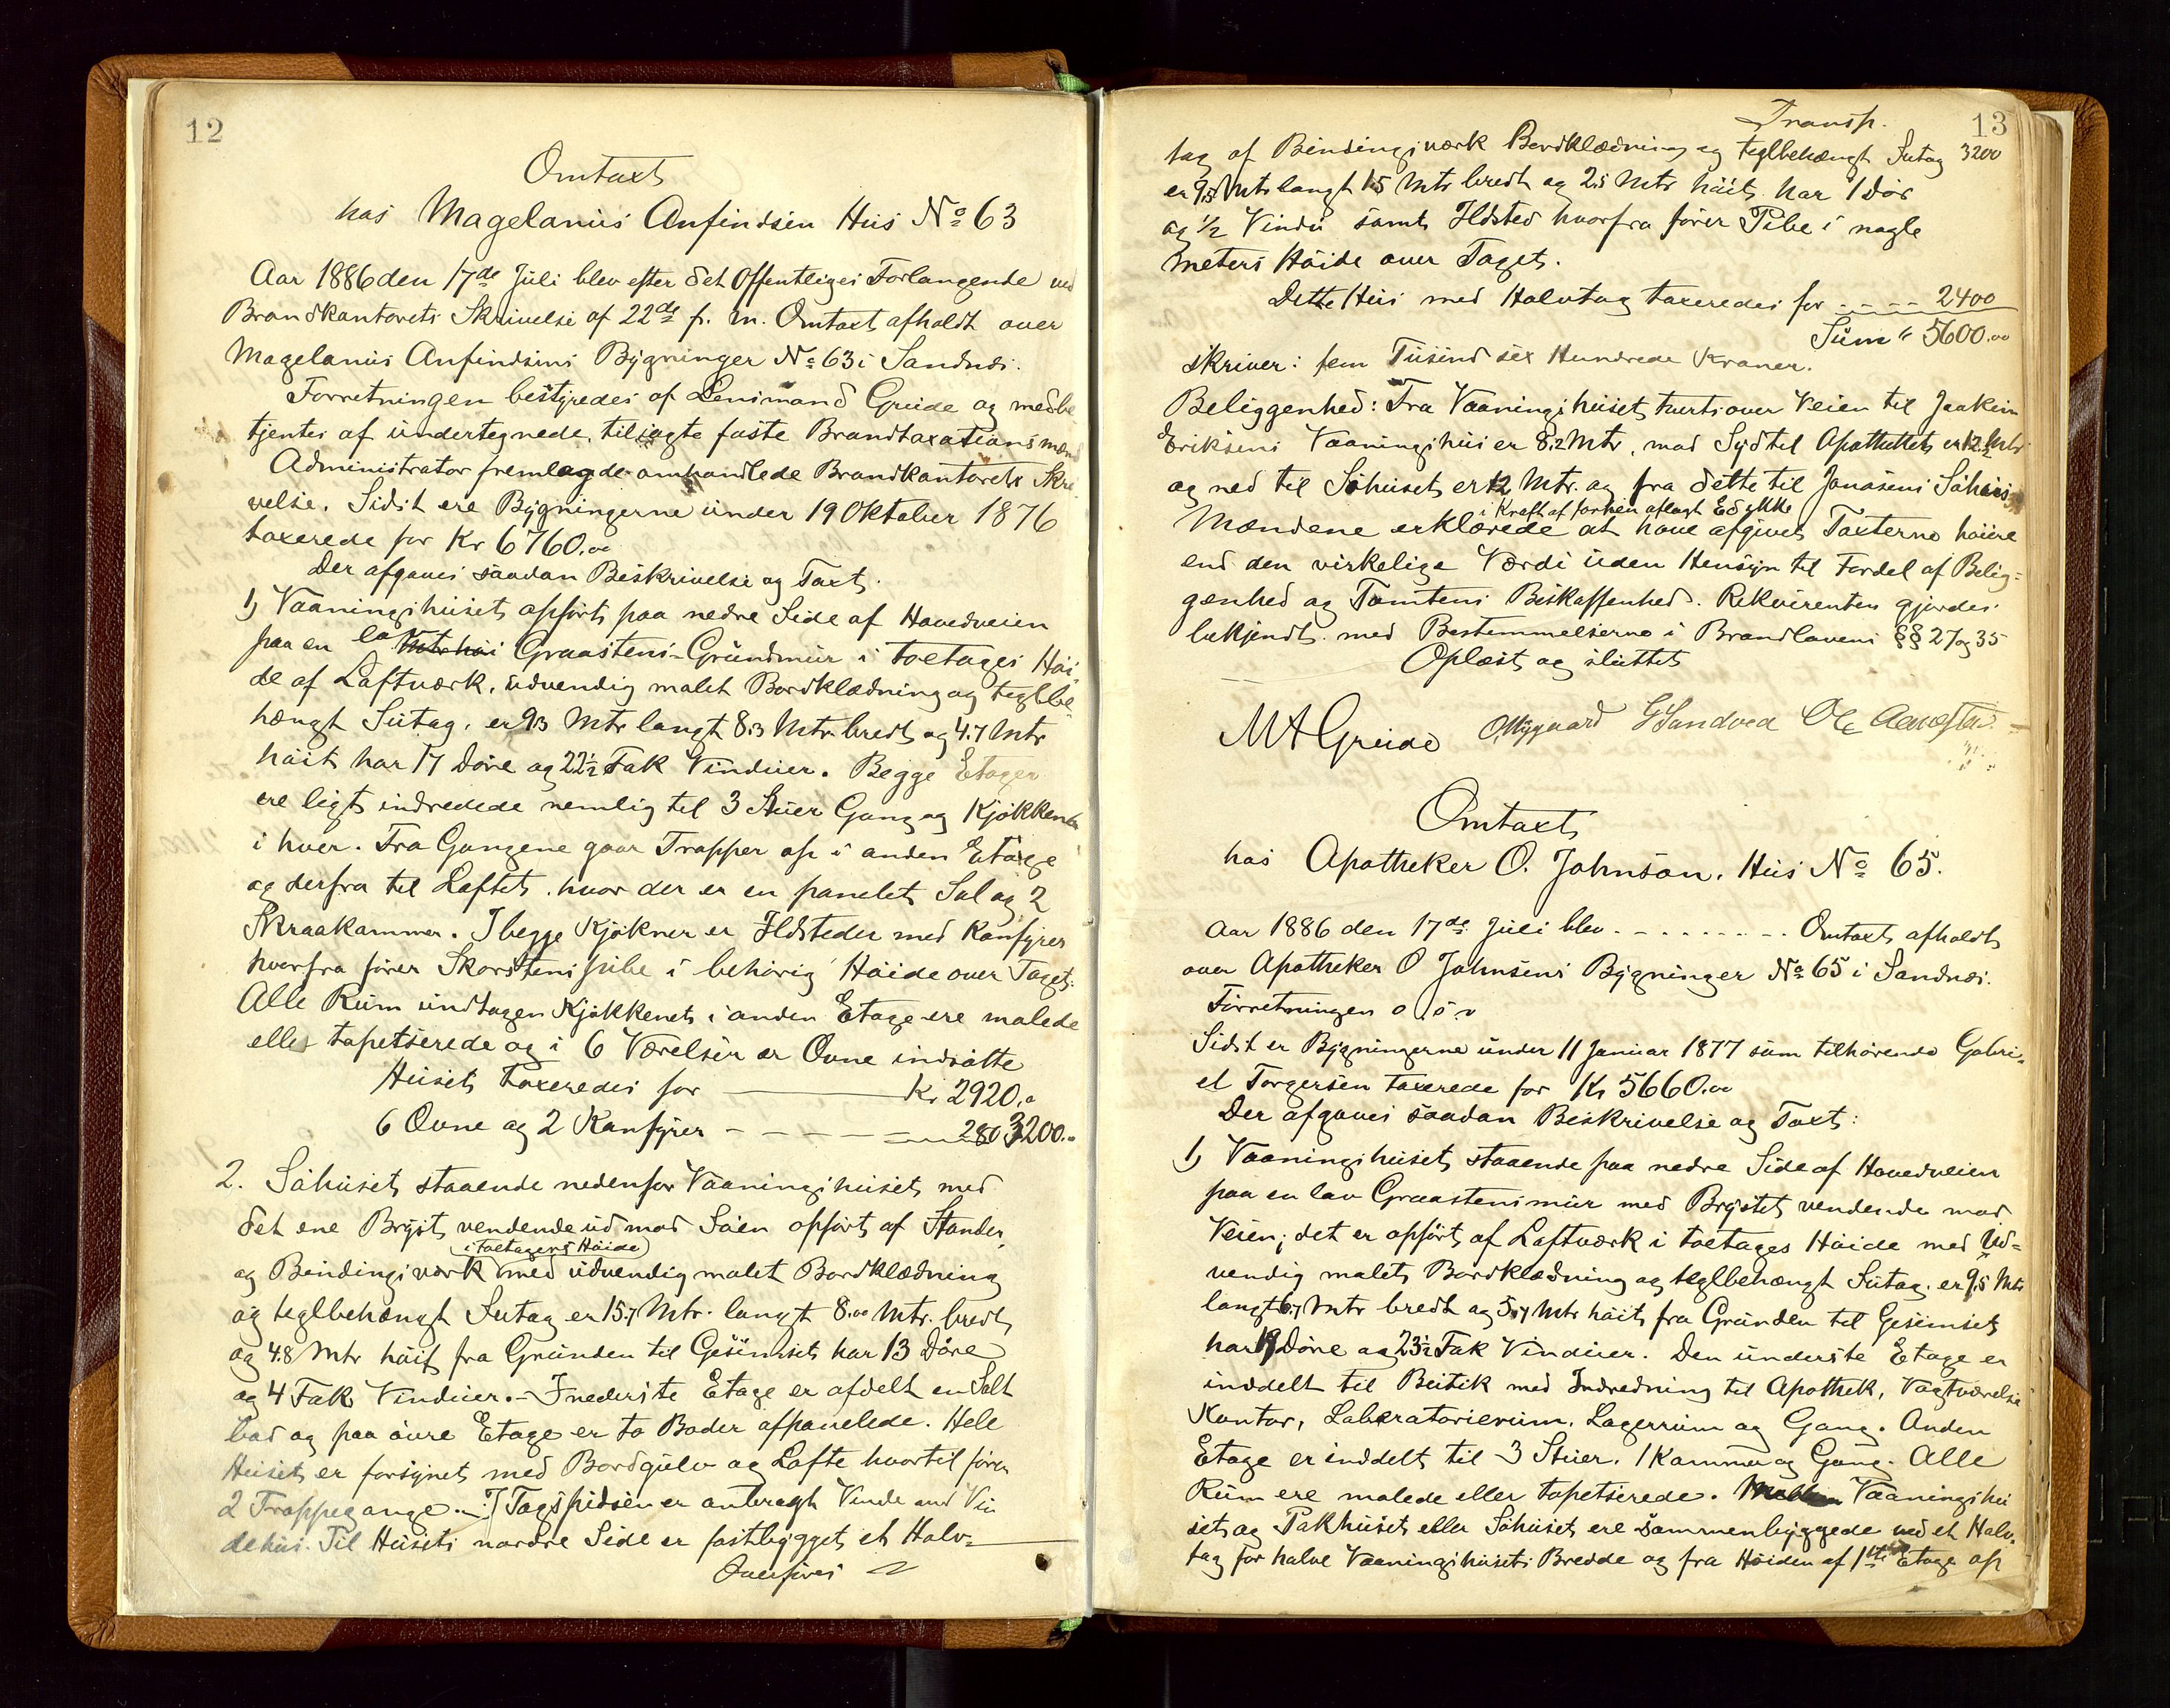 12
Omtaxt
hos Magelanius Anfindsen Hus No 63
Aar 1886 den 17de Juli blev efter det Offentliges Forlangende ved
Brandkontorets Skrivelse af 22de f. m. Omtaxt afholdt over
Magelanius Anfindsens Bygninger No 63 i Sandnes.
Forretningen bestyredes af Lensmand Greide og medbe
tjentes af undertegnede, tilsagte faste Brandtaxationsmænd
Administrator fremlagde omhandlede Brandkontorets Skri
velse. Sidst ere Bygningerne under 19 Oktober 1876
taxerede for Kr 6760.00
Der afgaves saadan Beskrivelse og Taxt.
1) Vaaningshuset opført paa nedre Side af Hovedveien
paa en lav Graastens-Grundmur i toetages Høi-
de af Laftværk, udvendig malet Bordklædning og teglbe-
hængt Sutag. er 9.3 Mtr langt 8.3 Mtr. bredt og 4.7 Mtr
høit har 17 Døre og 22½ Fak Vinduer. Begge Etager
ere ligt indredede nemlig til 3 Stuer Gang og Kjøkken
i hver. Fra Gangene gaar Trapper op i anden Etage
og derfra til Loftet, hvor der er en panelet Sal og 2
Skraakammer. I begge Kjøkner er Ildsteder med Komfyrer
hvorfra fører Skorstenspibe i behørig Høide over Taget.
Alle Rum undtagen Kjøkkenet i anden Etage ere malede
eller tapetserede og i 6 Værelser er Ovne indsatte
Huset taxeredes for Kr 2920.0
6 Ovne og 2 Komfyrer - - - - 280 3200.00
2. Søhuset staaende nedenfor Vaaningshuset med
det ene Bryst vendende ud mod Søen opført af Stander
i toetagers Høide
og Bindingsværk med udvendig malet Bordklædning
og teglbehængt Sutag er 15.7 Mtr. langt 8.00 Mtr. bredt
og 4.8 Mtr høit fra Grunden til Gesimset har 13 Døre
og 4 Fak Vinduer. - I nederste Etage er afdelt en Salt
bod og paa øvre Etage er to Boder afpanelede. Hele
Huset er forsynet med Bordgulv og Lofte hvortil fører
2 Trappegange. - I Tagspidsen er anbragt Vinde med Vin
dehus. Til Husets nordre Side er fastbygget et Halv-
Overføres
13
Transp.
tag af Bindingsværk Bordklædning og teglbehængt Sutag 3200
er 9.5 Mtr langt 1.5 Mtr bredt og 2.5 Mtr høit, har 1 Dør
og ½ Vindu samt Ildsted hvorfra fører Pibe i nogle
meters Høide over Taget.
Dette Hus med Halvtag taxeredes for - - - - 2400
Sum " 5600.00
skriver: fem Tusind sex Hundrede Kroner.
Beliggenhed: Fra Vaaningshuset tvertsover Veien til Joakim
Eriksens Vaaningshus er 8.2 Mtr, mod Syd til Apotheket er 12.5 Mtr
og ned til Søhuset er 12 Mtr. og fra dette til Jonasens Søhus
i Kraft af forhen aflagt Ed ikke
Mændene erklærede at have afgivet Taxterne høiere
end den virkelige Værdi uden Hensyn til Fordel af Belig-
genhed og Tomtens Beskaffenhed. Rekvirenten gjordes
bekjendt med Bestemmelserne i Brandlovens §§ 27 og 35
Oplæst og sluttet
M A Greide O Nygaard G Sandved Ole
Omtaxt
hos Apotheker O. Johnson. Hus No 65.
Aar 1886 den 17de Juli blev - - - - - - - - Omtaxt afholdt
over Apotheker O Johnsens Bygninger No 65 i Sandnes.
Forretningen o s v
Sidst er Bygningerne under 11 Januar 1877 som tilhørende Gabri-
el Torgersen taxerede for Kr 5660.00
Der afgaves saadan Beskrivelse og Taxt:
1) Vaaningshuset staaende paa nedre Side af Hovedveien
paa en lav Graastensmur med Brystet vendende mod
Veien; det er opført af Laftværk i toetages Høide med Ud-
vendig malet Bordklædning og teglbehængt Sutag. er 9.5 Mtr
langt 6.7 Mtr bredt og 5.7 Mtr høit fra Grunden til Gesimset
har 19 Døre og 23½ Fak Vinduer. Den underste Etage er
inddelt til Butik med Indredning til Apothek, Vagtværelse
Kontor, Laboratorierum, Lagerrum og Gang. Anden
Etage er inddelt til 3 Stuer, 1 Kammer og Gang. Alle
Rum ere malede eller tapetserede. Vaaningshu
set og Pakhuset eller Søhuset ere sammenbyggede ved et Halv-
tag for halve Vaaningshusets Bredde og fra Høiden af 1ste Etage op